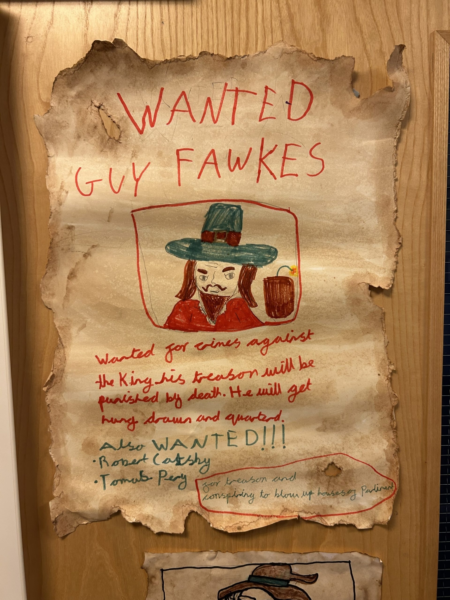 WANTED
GUY FAWKES
Wanted for crimes against
the King, his treason will be
punished by death. He will get
hung drawn and quarterd.
Also WANTED!!!
• Robert Catesby
• Tomas Percy
for treason and
conspiring to blow up